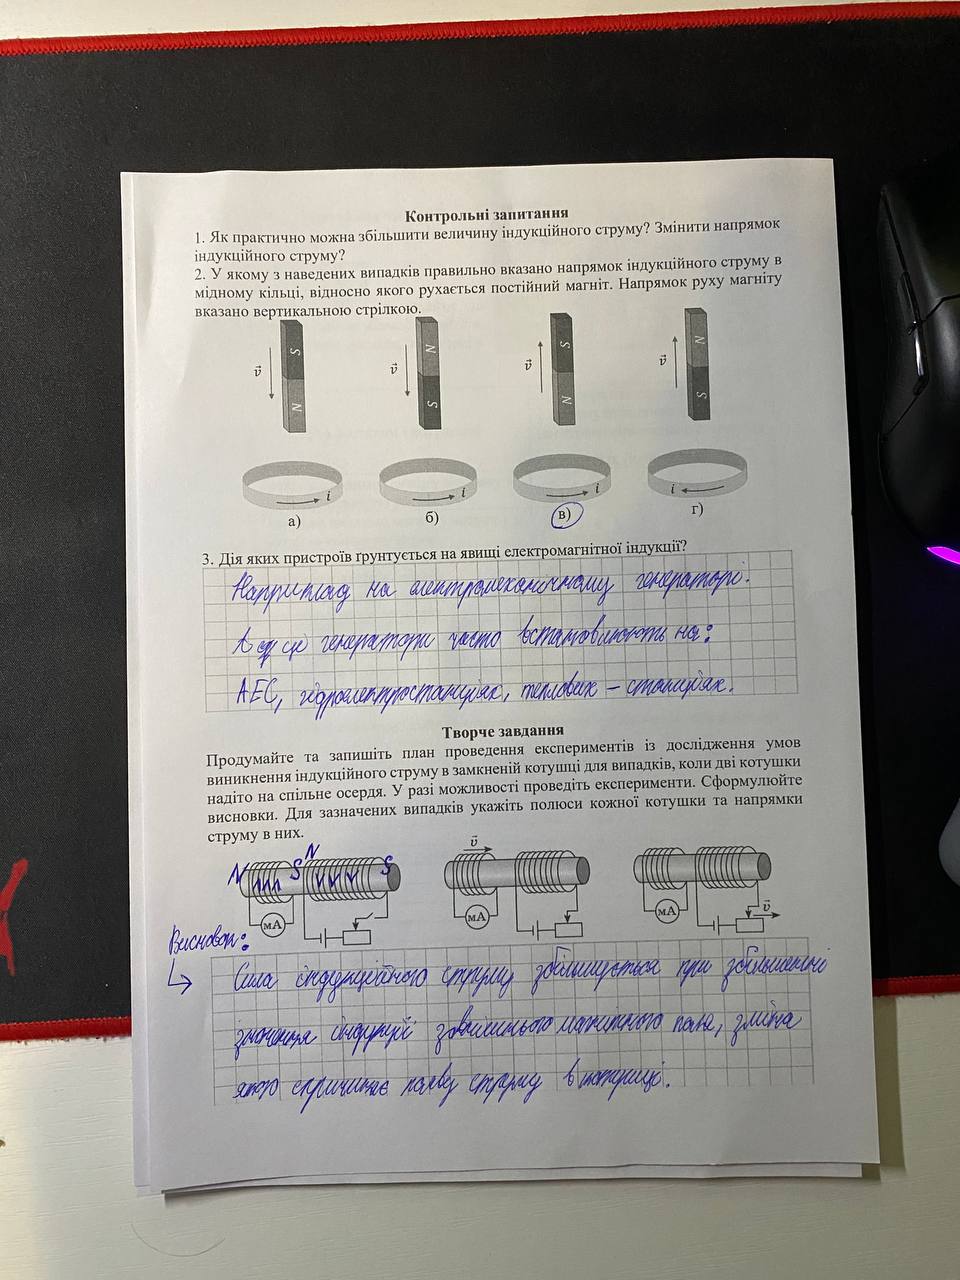 Контрольні запитання
1. Як практично можна збільшити величину індукційного струму? Змінити напрямок
індукційного струму?
2. У якому з наведених випадків правильно вказано напрямок індукційного струму в
мідному кільці, відносно якого рухається постійний магніт. Напрямок руху магніту
вказано вертикальною стрілкою.
S N v
N S v
S N v
N S v
i i i i
а) б) в) г)
3. Дія яких пристроїв ґрунтується на явищі електромагнітної індукції?
Наприклад на електромеханічному генераторі.
А ці генератори часто встановлюють на:
АЕС, гідроелектростанціях, теплових – станціях.
Творче завдання
Продумайте та запишіть план проведення експериментів із дослідження умов
виникнення індукційного струму в замкненій котушці для випадків, коли дві котушки
надіто на спільне осердя. У разі можливості проведіть експерименти. Сформулюйте
висновки. Для зазначених випадків укажіть полюси кожної котушки та напрямки
струму в них.
N S N S v
мА мА мА v
Висновок:
Сила індукційного струму збільшується при збільшенні
значення індукції зовнішнього магнітного поля, зміна
якого спричиняє появу струму в котушці.